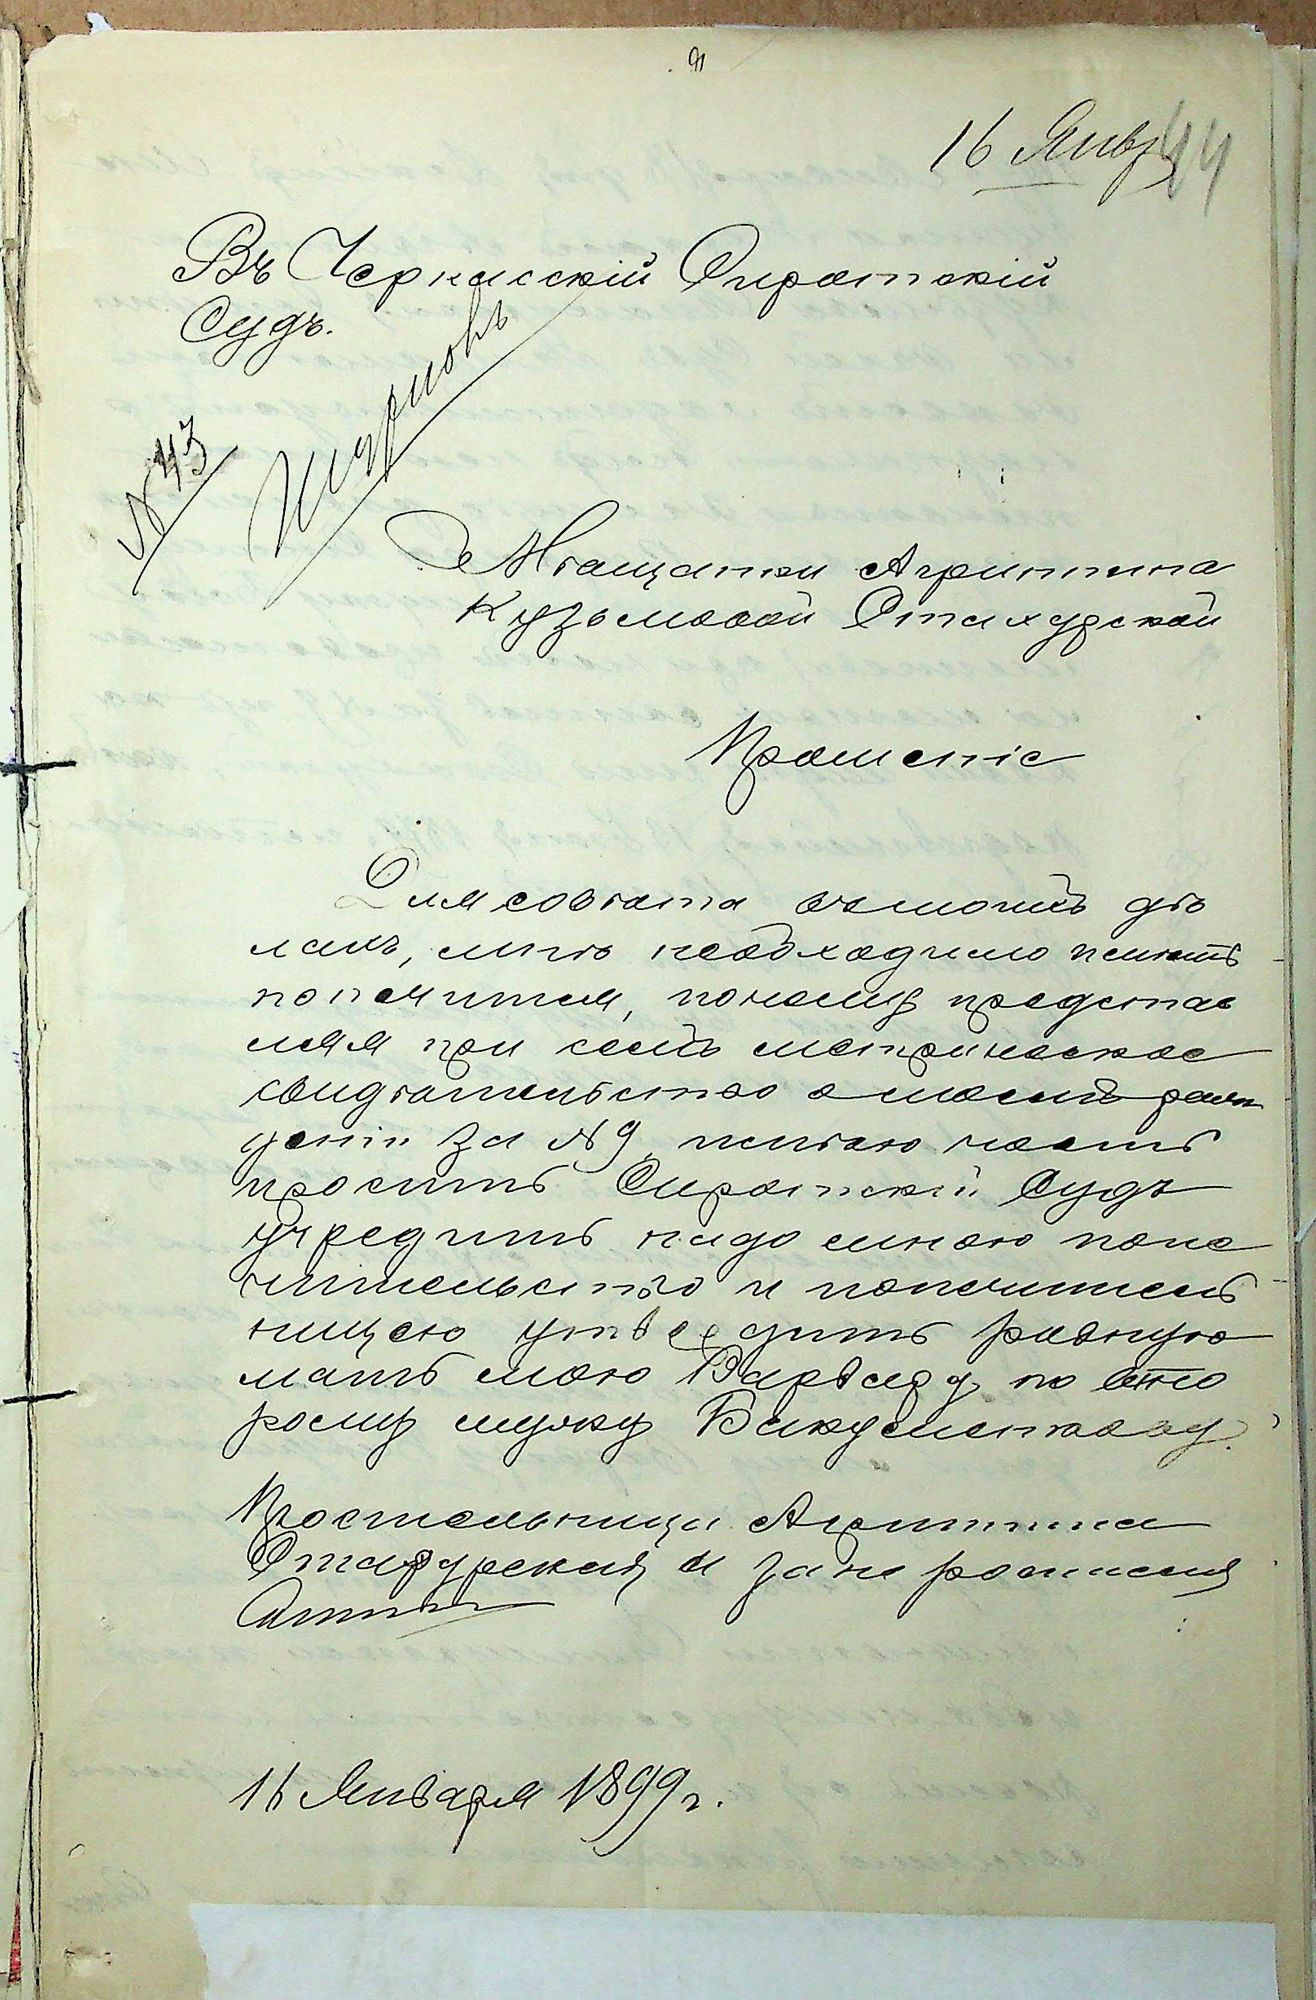 16 Янв
44
Въ Черкасскій Сиротскій
Судъ.
№ 43
Мѣщанки Агриппина
Кузьмовой Стахурской
Прошеніе
Для совѣта въ моихъ дѣ
лахъ, мнѣ необходимо имѣть
попечителя, почему представ
ляя при семъ метрическое
свидѣтельство о моемъ рож
деніи за № 9, имѣю честь
просить Сиротскій Судъ
учредить надо мною попе
чительство и попечитель
ницею утвердить родную
мать мою Варвару, по вто
рому мужу Бакуменкову.
Просительница Агриппина
Стахурская, а за нею росписался
16 Января 1899 г.